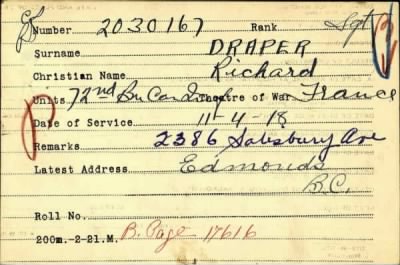 Number 2030167 Rank Sgt
Surname DRAPER
Christian Name Richard
Units 72nd Bn Can Inf Theatre of War France
Date of Service 11-4-18
Remarks 2386 Salisbury Ave
Latest Address Edmonds
B.C.
Roll No.
200m.-2-21.M. B. Page 17616